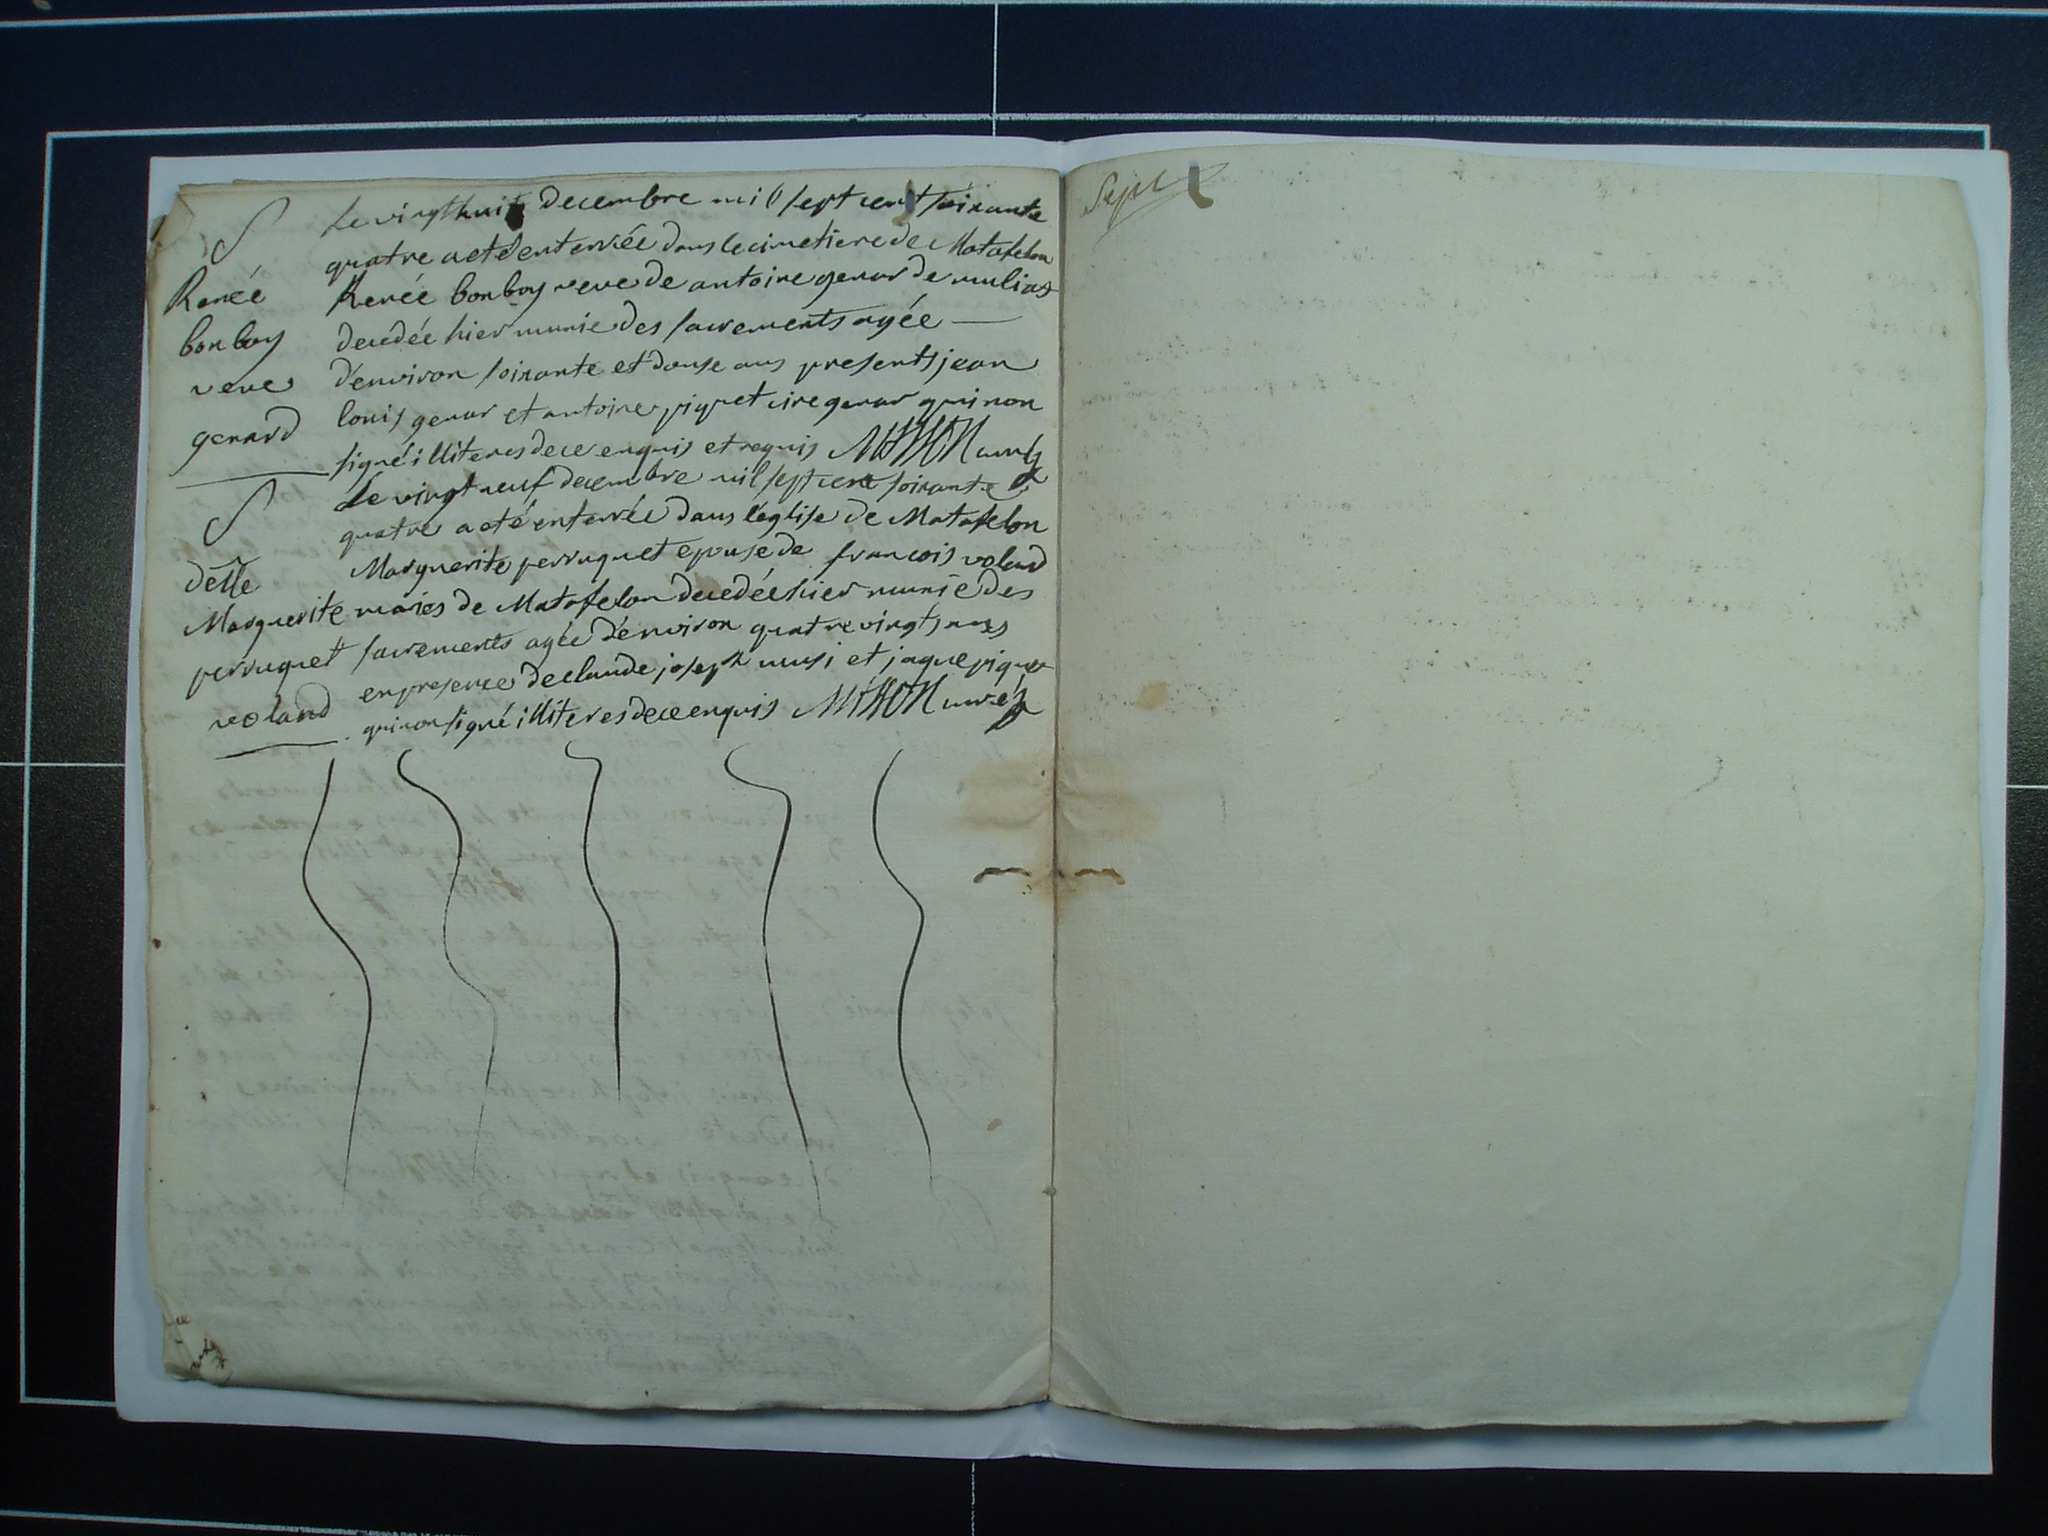 S
Renéé
bonboy
veve
genard
Le vingthuit decembre mil sept cent soixante
quatre a eté enterrée dans le cimetiere de Matafelon
Renéé bonboy veve de antoine genar de mulias
decedée hier munie des sacrements agée
d'environ soixante et douse ans presents jean
louis genar et antoine piquet
signé illiteres de ce enquis et requis
S
delle
Marguerite
perruquet
voland
Le vingt neuf decembre mil sept cent soixante
quatre a eté enterrée dans l'eglise de Matafelon
Marguerite perruquet epouse de francois voland
de Matafelon decedée hier munie des
sacrements agée d'environ quatre vingts
en presence de claude joseph musi et jaque piquet
qui non signé illiteres de ce enquis
Sept